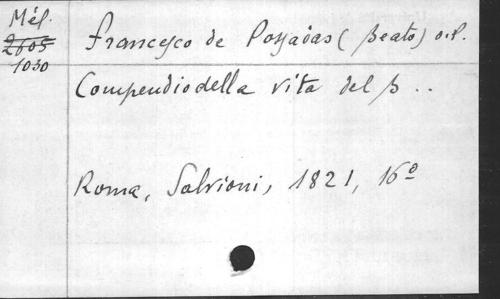 Mél.
2605
1030
Francesco de Possadas (Beato) o.P.
Compendio della vita del B ..
Roma, Salvioni, 1821, 16º